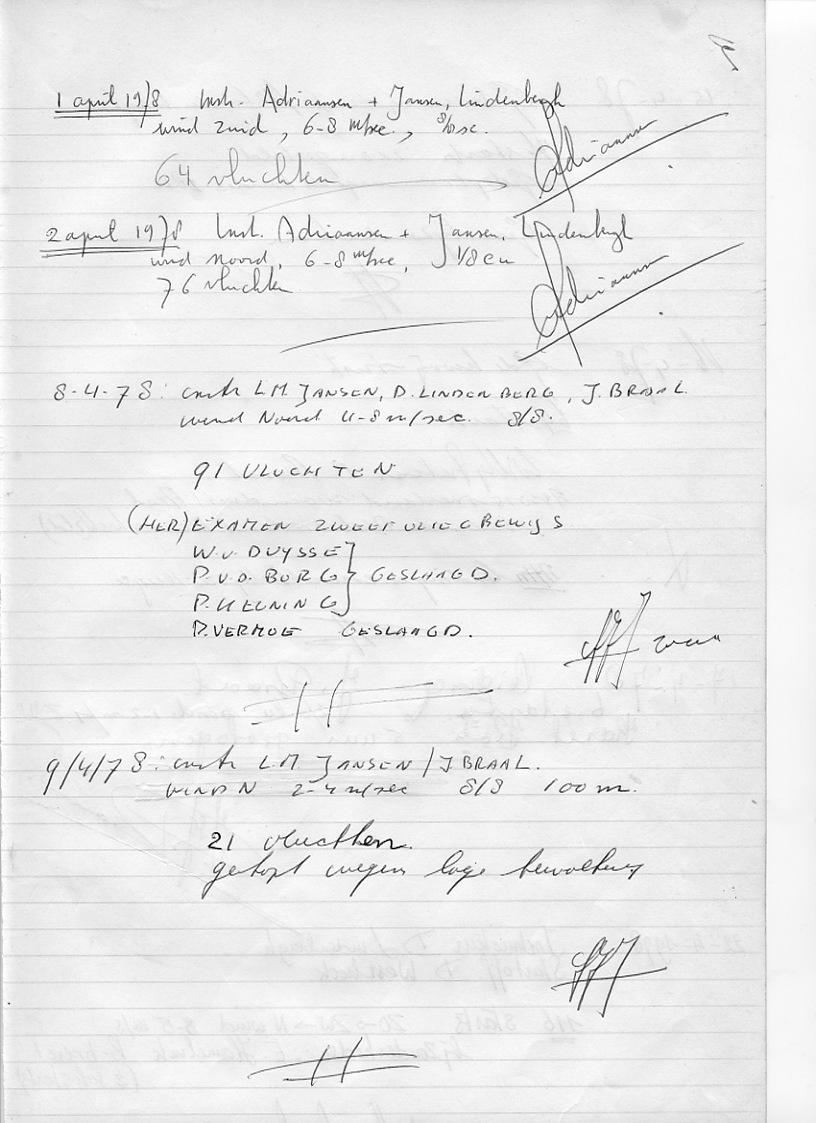 1 april 1978 Instr. Adriaansen + Jansen, Lindenbergh
wind zuid, 6-8 m/sec.,
64 vluchten
Adriaansen
2 april 1978 Inst. Adriaansen + Jansen, Lindenbergh
wind noord, 6-8 m/sec, 1/8 cu
76 vluchten
Adriaansen
8-4-78: instr L.M JANSEN, D. LINDENBERG, J. BRAAL
wind Noord 4-8 m/sec. 8/8.
91 VLUCHTEN
(HER) EXAMEN ZWEEFVLIEGBEWIJS
W.V. DUYSSE
P.V.D. BURG GESLAAGD.
P.
P. VERMUE GESLAAGD.
9/4/78: instr L.M JANSEN / J BRAAL.
WIND N 2-4 m/sec 8/8 100 m.
21 vluchten.
gestopt wegens lage bewolking